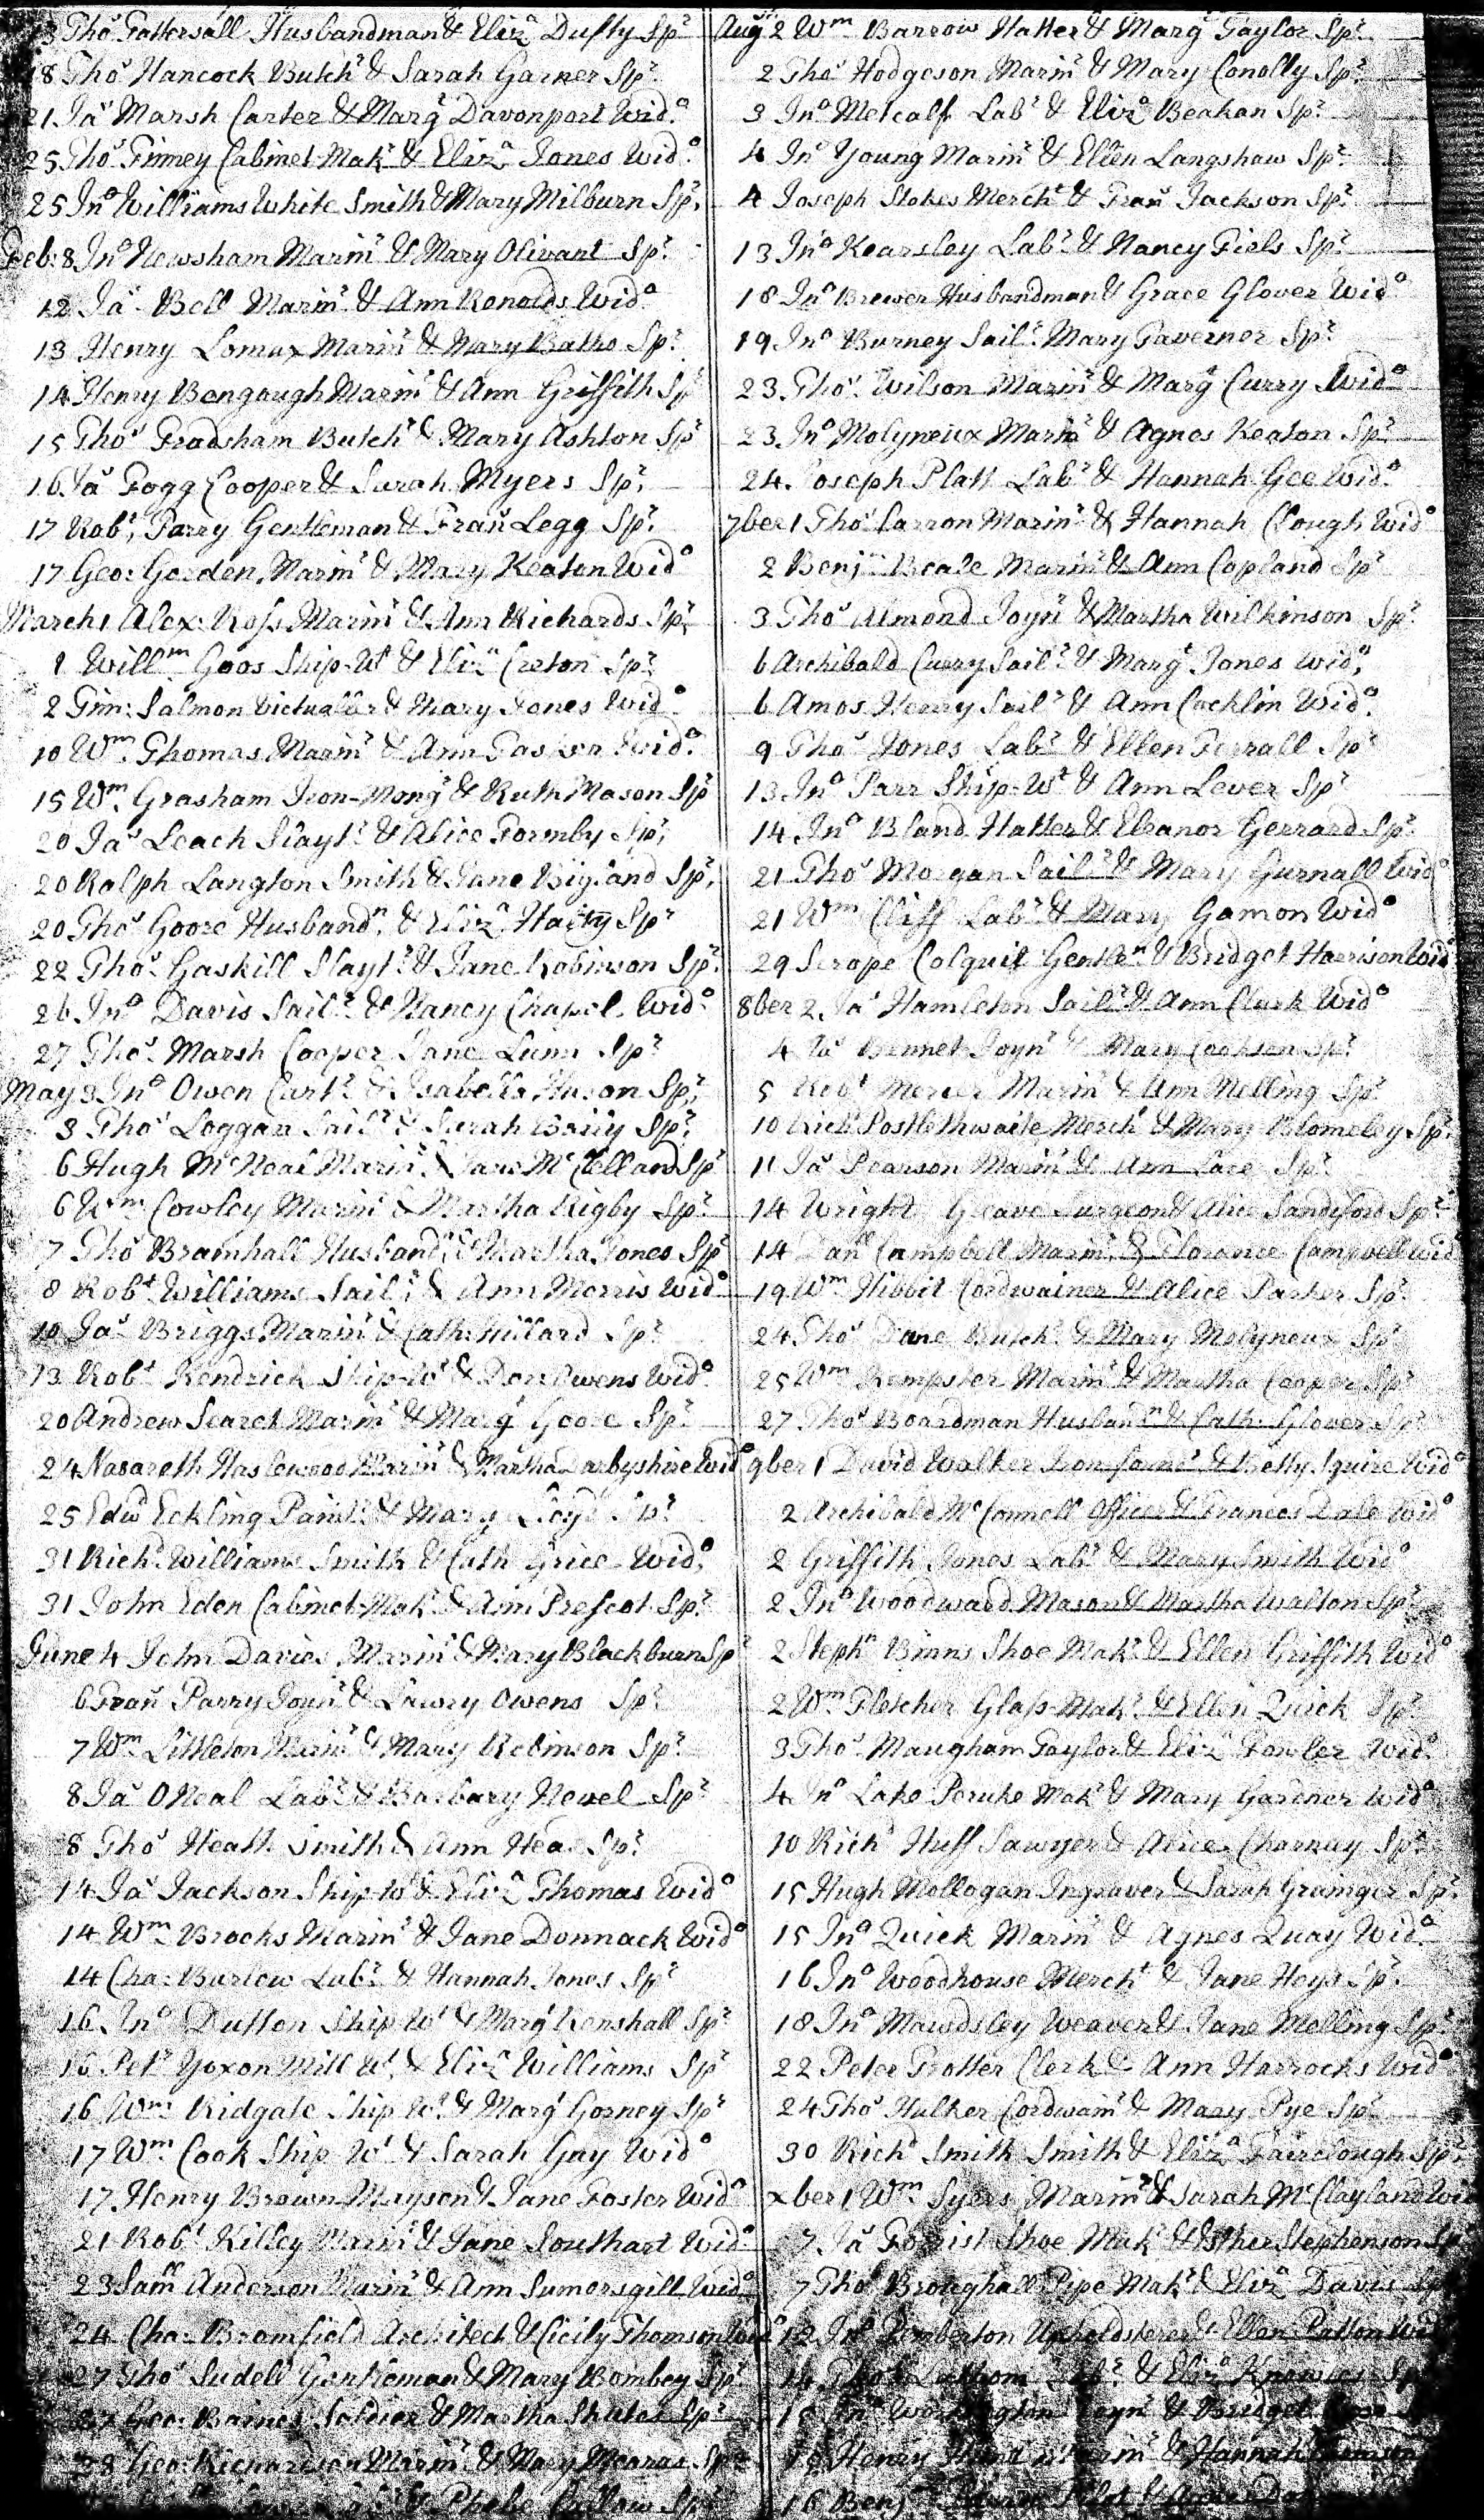 13 Thos Tattersall Husbandman & Eliza Dufty Spr
18 Thos Hancock Butchr & Sarah Garner Spr
21 Jas Marsh Carter & Margt Davonport Wido
25 Thos Finney Cabinet Makr & Eliza Jones Wido
25 Jno Williams White Smith & Mary Milburn Spr
Feb: 8 Jno Newsham Marinr & Mary Olivant Spr
12 Jas Bell Marinr & Ann Ronolds Wido
13 Henry Lomax Marinr & Mary Batho Spr
14 Henry Bengough Marinr & Ann Griffith Spr
15 Thos Fradsham Butchr & Mary Ashton Spr
16 Jas Fogg Cooper & Sarah Myers Spr
17 Robt Parry Gentleman & Fran Legg Spr
17 Geo: Gorden Marinr & Mary Keaton Wido
March 1 Alex: Ross Marinr & Ann Richards Spr
1 Willm Goos Ship-Wt & Eliza Creton Spr
2 Tim: Salmon Victualler & Mary Jones Wido
10 Wm Thomas Marinr & Ann Wido
15 Wm Grasham Iron-Mongr & Ruth Mason Spr
20 Jas Leach Slaytr & Alice Formby Spr
20 Ralph Langton Smith & Jane Bigland Spr
20 Thos Goore Husbandn & Eliza Spr
22 Thos Gaskill Slaytr & Jane Robinson Spr
26 Jno Davis Sailr & Nancy Chapel Wido
27 Thos Marsh Cooper Jane Lunn Spr
May 3 Jno Owen Cartr & Isabella Huson Spr
3 Thos Loggan Sailr & Sarah Spr
6 Hugh McNeal Marinr & Jane McClelland Spr
6 Wm Cowley Marinr & Martha Rigby Spr
7 Thos Bramhall Husbandn & Martha Jones Spr
8 Robt Williams Sailr & Ann Morris Wido
10 Jas Briggs Marinr & Cath: Spr
13 Robt Kendrick Ship-Wt & Owens Wido
20 Andrew Search Marinr & Margt Goore Spr
24 Nasareth Haslewood Marinr & Martha Darbyshire Wido
25 Edwd Eckling Paintr & Mary Loyd Spr
31 Richd Williams Smith & Cath Grice Wido
31 John Eden Cabinet-Makr & Ann Prescot Spr
June 4 John Davies Marinr & Mary Blackburn Spr
6 Fran Parry Joynr & Lawry Owens Spr
7 Wm Littleton Marinr & Mary Robinson Spr
8 Jas ONeal Labr & Barbary Newel Spr
8 Thos Heath Smith & Ann Spr
14 Jas Jackson Ship-Wt & Eliza Thomas Wido
14 Wm Brooks Marinr & Jane Donnack Wido
14 Cha: Burlow Labr & Hannah Jones Spr
16 Jno Dutton Ship-Wt & Margt Kenshall Spr
16 Petr Yoxon Mill Wt & Eliza Williams Spr
16 Wm Ridgate Ship Wt & Margt Gorney Spr
17 Wm Cook Ship Wt & Sarah Gay Wido
17 Henry Brown Mayson & Jane Foster Wido
21 Robt Killey Marinr & Jane Southart Wido
23 Saml Anderson Marinr & Ann Sumersgill Wido
24 Cha: Bromfield Architect & Cicily Thomson Wido
27 Thos Sudell Gentleman & Mary Bombey Spr
27 Geo: Baines Soldier & Martha Shutes Spr
28 Geo: Richardson Marinr & Mary Mearas Spr
& Phebe Callow Spr
Augt 2 Wm Barrow Hatter & Margt Taylor Spr
2 Thos Hodgeson Marinr & Mary Conolly Spr
3 Jno Metcalf Labr & Eliza Beakan Spr
4 Jno Young Marinr & Ellen Langshaw Spr
4 Joseph Stokes Mercht & Fran Jackson Spr
13 Jno Kearsley Labr & Nancy Fiels Spr
18 Jno Brewer Husbandman & Grace Glover Wido
19 Jno Burney Sailr Mary Taverner Spr
23 Thos Wilson Marinr & Margt Curry Wido
23 Jno Molyneux Marinr & Agnes Keaton Spr
24 Joseph Platt Labr & Hannah Gee Wido
7ber 1 Thos Carron Marinr & Hannah Clough Wido
2 Benjn Beale Marinr & Ann Copland Spr
3 Thos Almond Joynr & Martha Wilkinson Spr
6 Archibald Curry Sailr & Margt Jones Wido
6 Amos Henry Sailr & Ann Cocklin Wido
9 Thos Jones Labr & Ellen Ferrall Spr
13 Jno Parr Ship-Wt & Ann Lever Spr
14 Jno Bland Hatter & Eleanor Gerrard Spr
21 Thos Morgan Sailr & Mary Gurnall Wido
21 Wm Cliff Labr & Mary Gamon Wido
29 Scrope Colquit Gentlen & Bridget Harrison Wido
8ber 2 Jas Hamleton Sailr & Ann Clark Wido
4 Jas Bennet Joynr & Mary Cookson Spr
5 Robt Mercer Marinr & Ann Melling Spr
10 Richd Postlethwaite Mercht & Mary Blomeley Spr
11 Jas Pearson Marinr & Ann Lace Spr
14 Wright Greave Surgeon & Alice Sandiford Spr
14 Danl Campbell Marinr & Florence Campbell Wido
19 Wm Hibbit Cordwainer & Alice Parker Spr
24 Thos Dane Butchr & Mary Molyneux Spr
25 Wm Kempster Marinr & Martha Cooper Spr
27 Thos Boardman Husbandn & Cath: Glover Spr
9ber 1 David Walker Iron-founr & Betty Squire Wido
2 Archibald McConnell Officer & Frances Dale Wido
2 Griffith Jones Labr & Mary Smith Wido
2 Jno Woodward Mason & Martha Walton Spr
2 Stephn Binns Shoe Makr & Ellen Griffith Wido
2 Wm Fletcher Glass-Makr & Ellen Quick Spr
3 Thos Maugham Taylor & Eliza Fowler Wido
4 Jno Lake Peruke Makr & Mary Gardner Wido
10 Richd Huff Sawyer & Alice Charnuy Spr
15 Hugh Mollogan Ingraver & Sarah Grainger Spr
15 Jno Quick Marinr & Agnes Quay Wido
16 Jno Woodhouse Mercht & Jane Heys Spr
18 Jno Mawdsley Weaver & Jane Melling Spr
22 Peter Trotter Clerk & Ann Harrocks Wido
24 Thos Hulker Cordwainr & Mary Pye Spr
30 Richd Smith Smith & Eliza Fairclough Spr
xber 1 Wm Syers Marinr & Sarah McClayland Wi
7 Jas Forrist Shoe Makr & Esther Stephenson Sp
7 Thos Broughall Pipe Makr & Eliza Davis Sp
12 Jno Pemberton Upholdsterer & Ellen Patton Wid
14 Thos Lathom Labr & Eliza Knowles Sp
15 Jno Worthington Joynr & Bridget
15 Henry Hand Marinr & Hannah
16 Benjn Pilot &